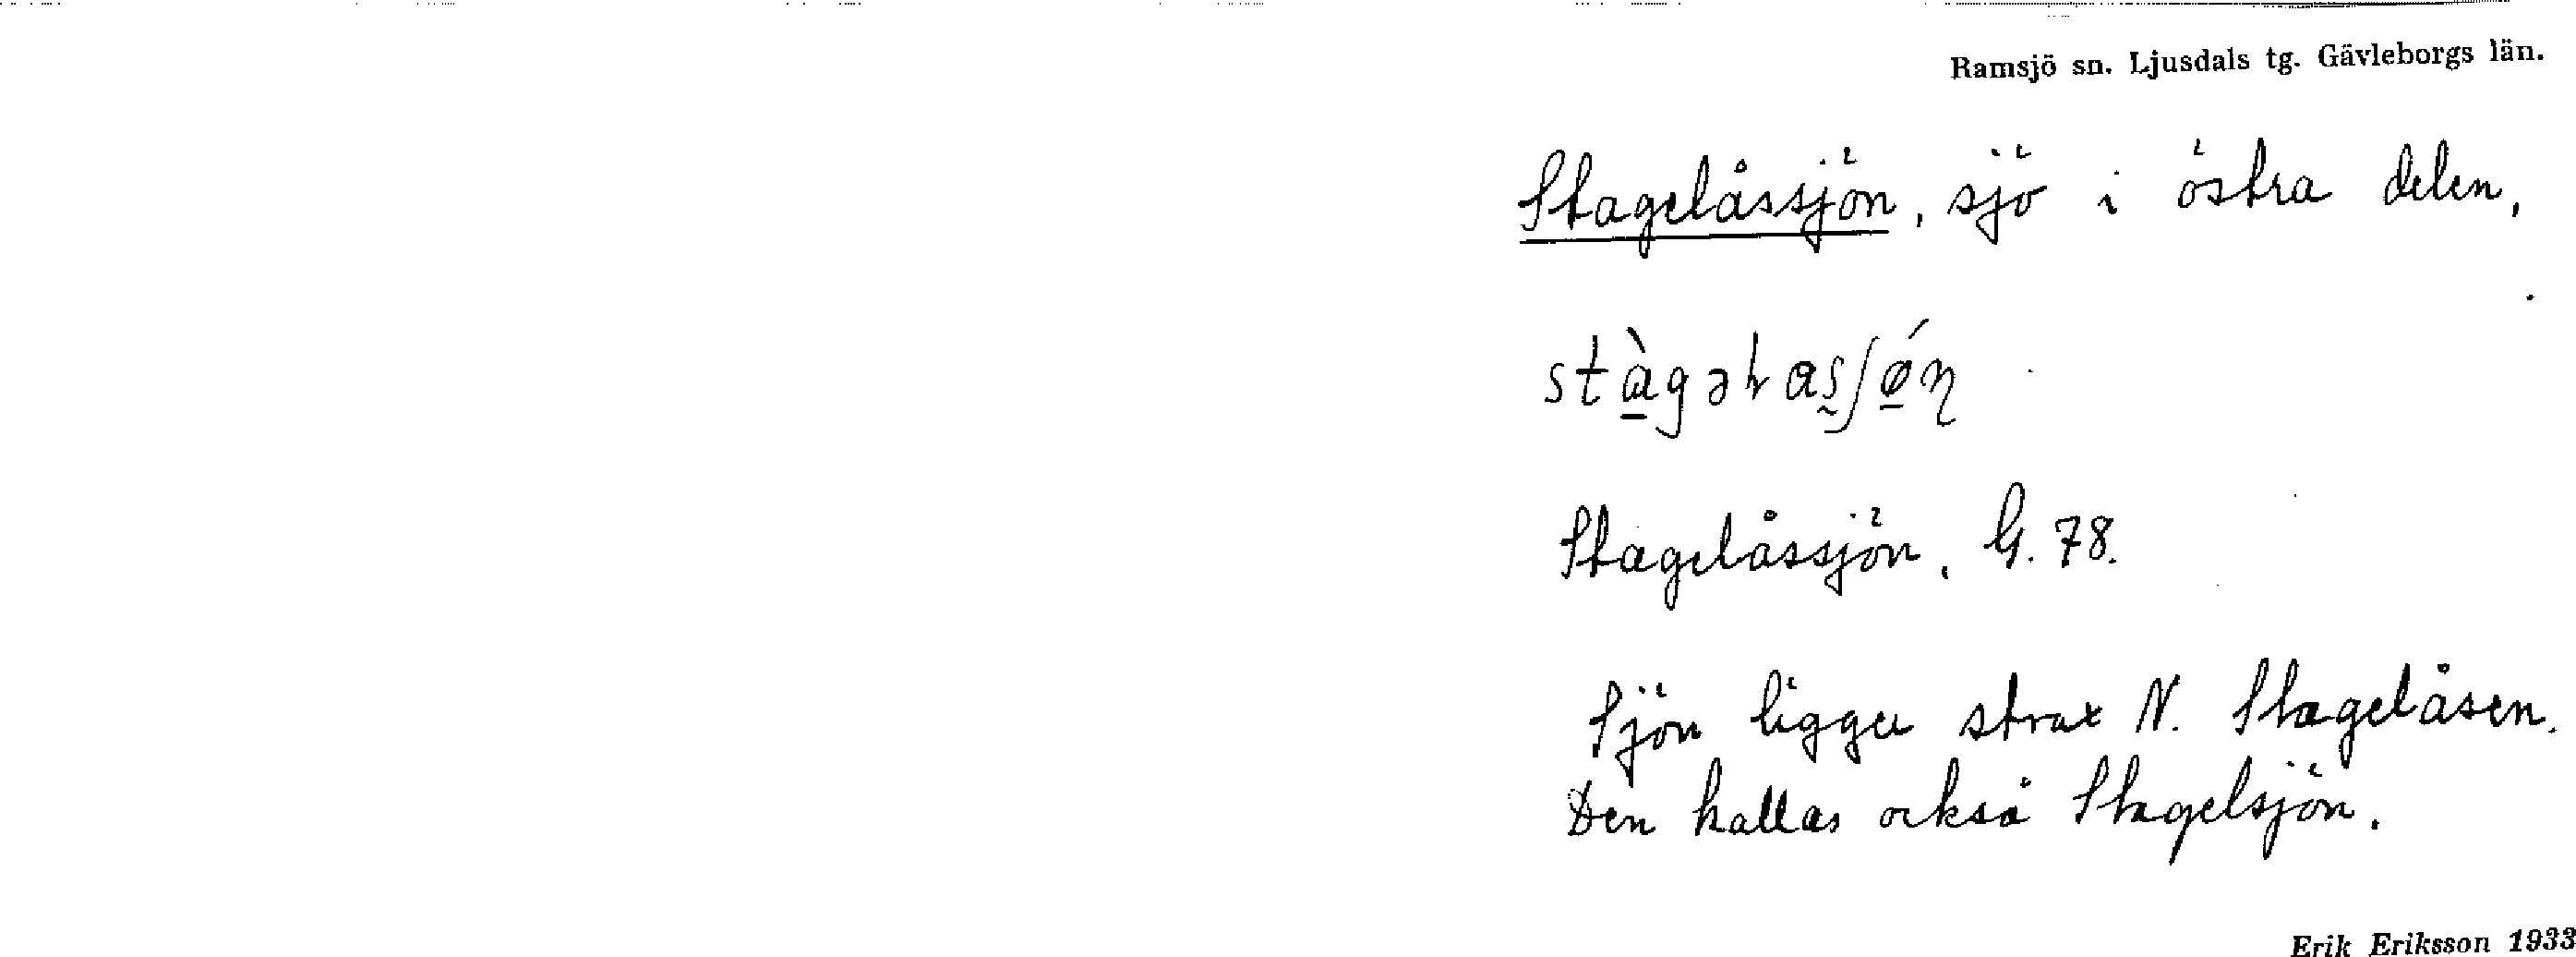 Ramsjö sn. Ljusdals tg. Gävleborgs län.
Stagelåssjön, sjö i östra delen,
Stagelåssjön, G. 78.
Sjön ligger strax N. Stagelåsen.
Den kallas också Stagelsjön.
Erik Eriksson 1933